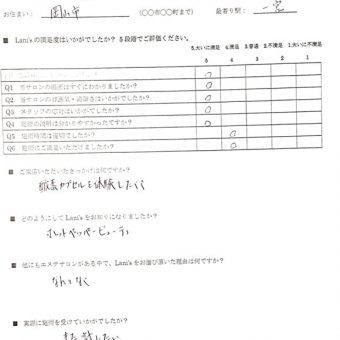 お住まい： 岡山市 （〇〇市〇〇町まで） 最寄り駅： 一宮
■ Lani'sの満足度はいかがでしたか？ 5段階でご評価ください。
5.大いに満足 4.満足 3.普通 2.不満足 1.大いに不満足
5 4 3 2 1
Q1 当サロンの場所はすぐにわかりましたか？ ○
Q2 当サロンの雰囲気・清潔さはいかがでしたか？ ○
Q3 スタッフの対応はいかがでしたか？ ○
Q4 施術の説明は分かりやすかったですか？ ○
Q5 施術時間は適切でしたか？ ○
Q6 施術にご満足いただけましたか？ ○
■ ご来店いただいたきっかけは何ですか？
酸素カプセルを体験したくて
■ どのようにしてLani'sをお知りになりましたか？
ホットペッパービューティ
■ 他にもエステサロンがある中で、Lani'sをお選び頂いた理由は何ですか？
なんとなく
■ 実際に施術を受けていかがでしたか？
また試したい